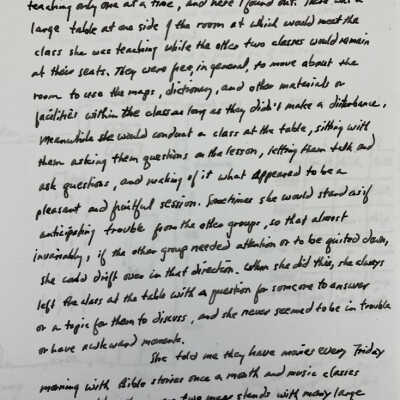 teaching only one at a time, and here I found out. There was a
large table at one side of the room at which would meet the
class she was teaching while the other two classes would remain
at their seats. They were free, in general, to move about the
room to use the maps, dictionary, and other materials or
facilities within the class as long as they didn't make a disturbance.
Meanwhile she would conduct a class at the table, sitting with
them asking them questions on the lesson, letting them talk and
ask questions, and making of it what appeared to be a
pleasant and fruitful session. Sometimes she would stand as if
anticipating trouble from the other groups, so that almost
invariably, if the other group needed attention or to be quieted down,
she could drift over in that direction. When she did this, she always
left the class at the table with a question for someone to answer
or a topic for them to discuss, and she never seemed to be in trouble
or have awkward moments.
She told me they have movies every Friday
morning with Bible stories once a month and music classes
two music stands with many large